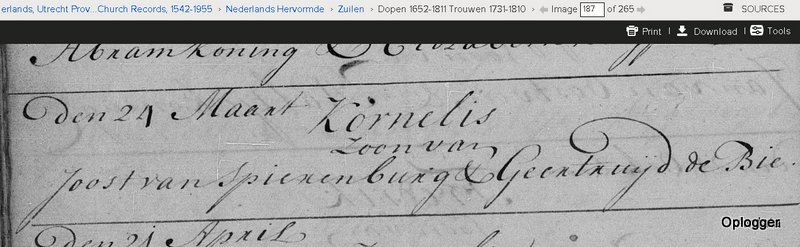 erlands, Utrecht Prov...Church Records, 1542-1955 › Nederlands Hervormde › Zuilen › Dopen 1652-1811 Trouwen 1731-1810 › Image 187 of 265 SOURCES
Print Download Tools
Abram Koning &
den 24 Maart Kornelis
Zoon van
Joost van Spierenburg & Geertruijd de Bie.
den 21 April
Oplogger